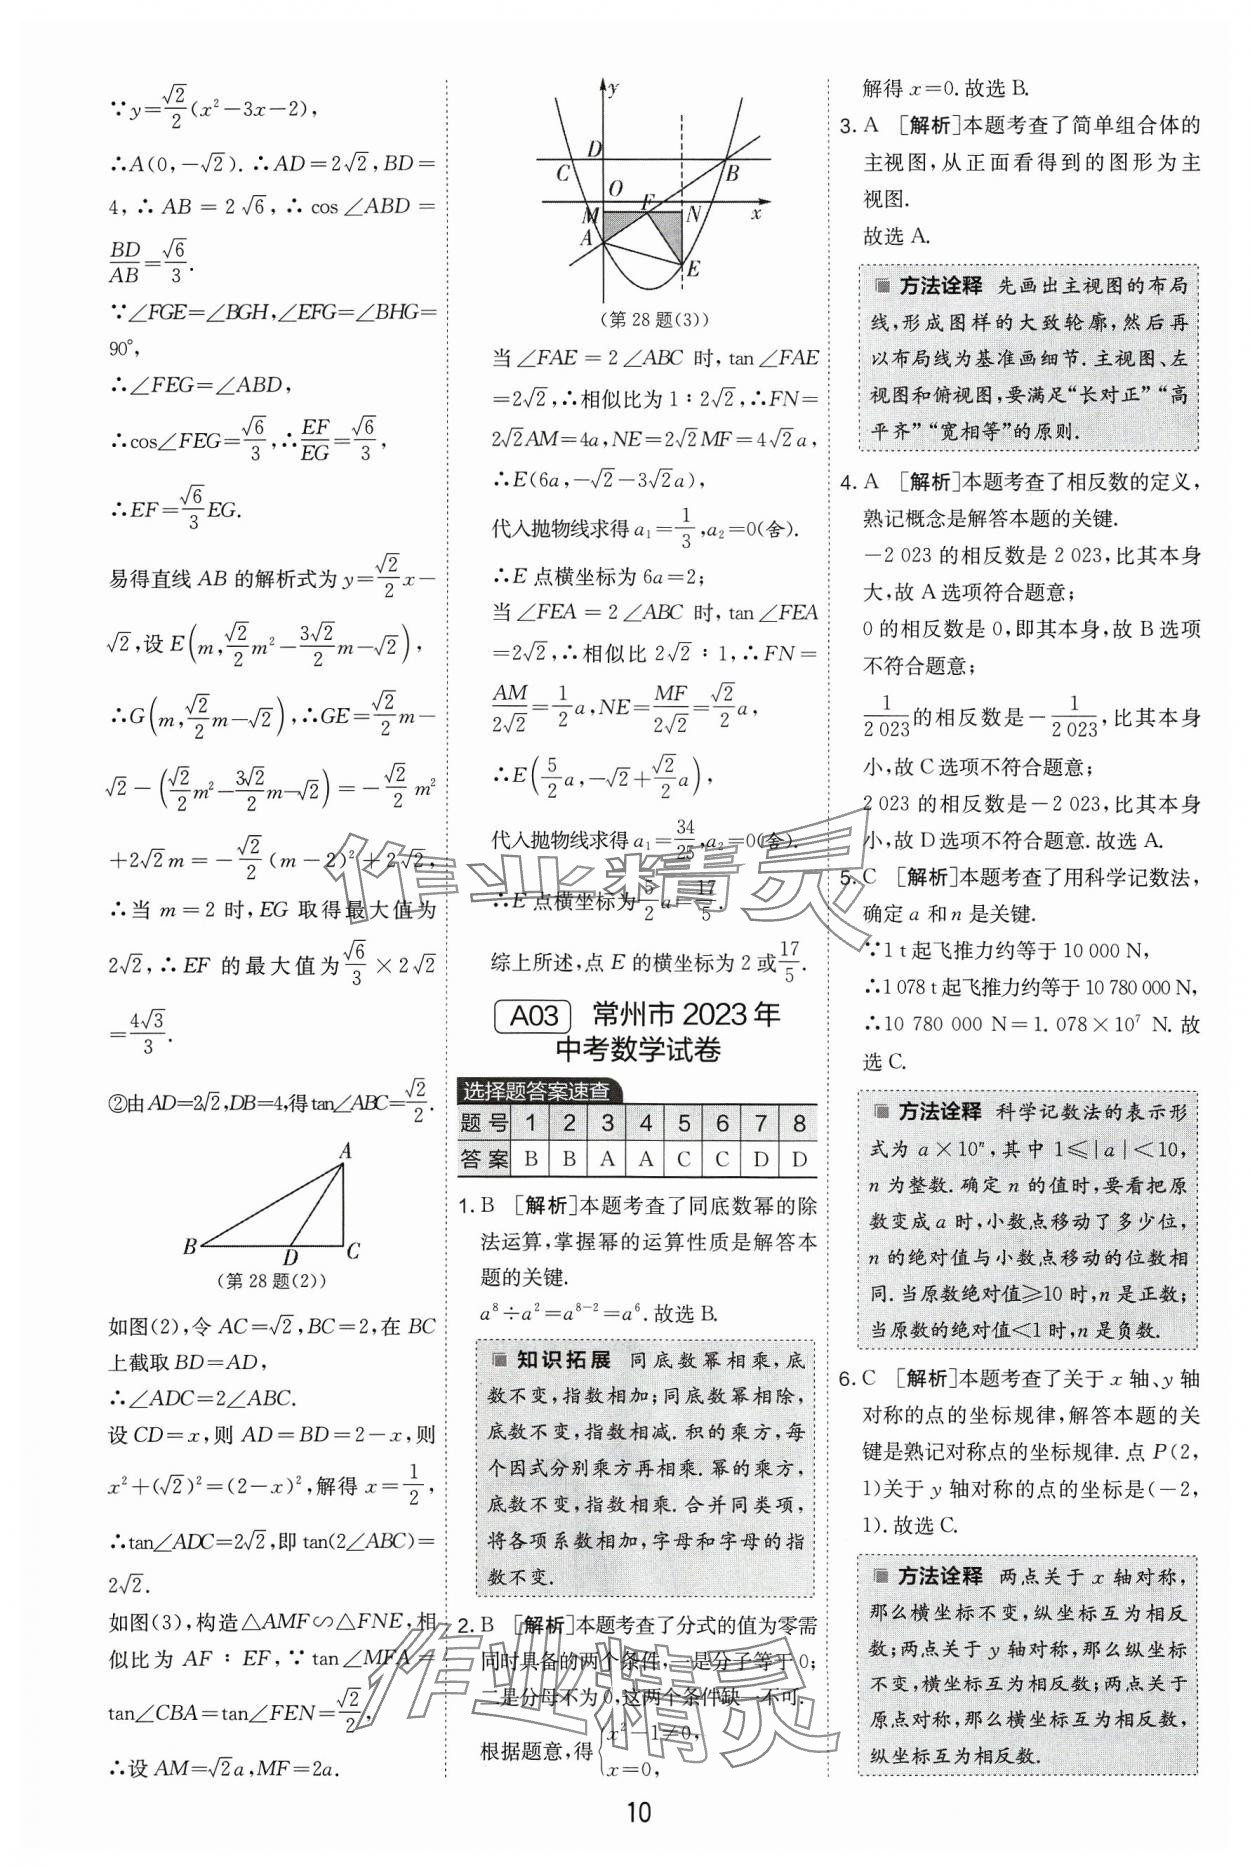 ∵y=√2/2(x²−3x−2),
∴A(0,−√2). ∴AD=2√2,BD=
4,∴AB=2√6,∴cos∠ABD=
BD/AB=√6/3.
∵∠FGE=∠BGH,∠EFG=∠BHG=
90°,
∴∠FEG=∠ABD,
∴cos∠FEG=√6/3,∴EF/EG=√6/3,
∴EF=√6/3EG.
易得直线AB的解析式为y=√2/2x−
√2,设E(m,√2/2m²−3√2/2m−√2),
∴G(m,√2/2m−√2),∴GE=√2/2m−
√2−(√2/2m²−3√2/2m−√2)=−√2/2m²
+2√2m=−√2/2(m−2)²+2√2,
∴当m=2时,EG取得最大值为
2√2,∴EF的最大值为√6/3×2√2
=4√3/3.
②由AD=2√2,DB=4,得tan∠ABC=√2/2.
A
B
D
C
(第28题(2))
如图(2),令AC=√2,BC=2,在BC
上截取BD=AD,
∴∠ADC=2∠ABC.
设CD=x,则AD=BD=2−x,则
x²+(√2)²=(2−x)²,解得x=1/2,
∴tan∠ADC=2√2,即tan(2∠ABC)=
2√2.
如图(3),构造△AMF∽△FNE,相
似比为AF∶EF,∵tan∠MFA=
tan∠CBA=tan∠FEN=√2/2,
∴设AM=√2a,MF=2a.
y
D
C
B
O
M
F
N
x
A
E
(第28题(3))
当∠FAE=2∠ABC时,tan∠FAE
=2√2,∴相似比为1∶2√2,∴FN=
2√2AM=4a,NE=2√2MF=4√2a,
∴E(6a,−√2−3√2a),
代入抛物线求得a₁=1/3,a₂=0(舍).
∴E点横坐标为6a=2;
当∠FEA=2∠ABC时,tan∠FEA
=2√2,∴相似比2√2∶1,∴FN=
AM/2√2=1/2a,NE=MF/2√2=√2/2a,
∴E(5/2a,−√2+√2/2a),
代入抛物线求得a₁=34/25,a₂=0(舍).
∴E点横坐标为5/2a=17/5.
综上所述,点E的横坐标为2或17/5.
A03 常州市2023年
中考数学试卷
选择题答案速查
题号 1 2 3 4 5 6 7 8
答案 B B A A C C D D
1. B [解析]本题考查了同底数幂的除
法运算,掌握幂的运算性质是解答本
题的关键.
a⁸÷a²=a⁸⁻²=a⁶.故选B.
知识拓展 同底数幂相乘,底
数不变,指数相加;同底数幂相除,
底数不变,指数相减.积的乘方,每
个因式分别乘方再相乘.幂的乘方,
底数不变,指数相乘.合并同类项,
将各项系数相加,字母和字母的指
数不变.
2. B [解析]本题考查了分式的值为零需
同时具备的两个条件,一是分子等于0;
二是分母不为0,这两个条件缺一不可.
根据题意,得{x²−1≠0,
x=0,
解得x=0.故选B.
3. A [解析]本题考查了简单组合体的
主视图,从正面看得到的图形为主
视图.
故选A.
方法诠释 先画出主视图的布局
线,形成图样的大致轮廓,然后再
以布局线为基准画细节.主视图、左
视图和俯视图,要满足“长对正”“高
平齐”“宽相等”的原则.
4. A [解析]本题考查了相反数的定义,
熟记概念是解答本题的关键.
−2 023的相反数是2 023,比其本身
大,故A选项符合题意;
0的相反数是0,即其本身,故B选项
不符合题意;
1/2 023的相反数是−1/2 023,比其本身
小,故C选项不符合题意;
2 023的相反数是−2 023,比其本身
小,故D选项不符合题意.故选A.
5. C [解析]本题考查了用科学记数法,
确定a和n是关键.
∵1 t起飞推力约等于10 000 N,
∴1 078 t起飞推力约等于10 780 000 N,
∴10 780 000 N=1.078×10⁷ N.故
选C.
方法诠释 科学记数法的表示形
式为a×10ⁿ,其中1⩽|a|<10,
n为整数.确定n的值时,要看把原
数变成a时,小数点移动了多少位,
n的绝对值与小数点移动的位数相
同.当原数绝对值⩾10时,n是正数;
当原数的绝对值<1时,n是负数.
6. C [解析]本题考查了关于x轴、y轴
对称的点的坐标规律,解答本题的关
键是熟记对称点的坐标规律.点P(2,
1)关于y轴对称的点的坐标是(−2,
1).故选C.
方法诠释 两点关于x轴对称,
那么横坐标不变,纵坐标互为相反
数;两点关于y轴对称,那么纵坐标
不变,横坐标互为相反数;两点关于
原点对称,那么横坐标互为相反数,
纵坐标互为相反数.
作业精灵
作业精灵
10